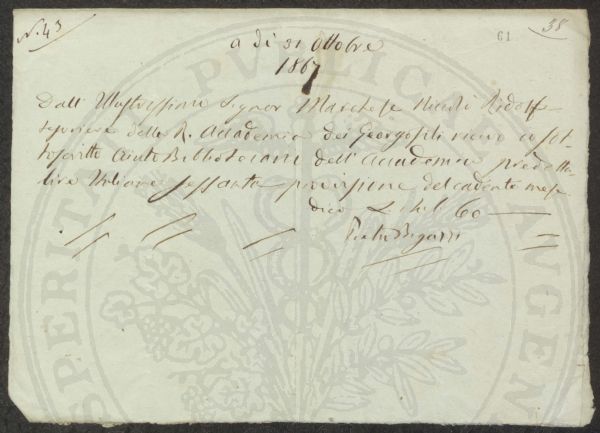 N. 43
61
38
a dì 31 Ottobre
1867
Dall' Illustrissimo Signor Marchese Niccolò Ridolfi
tesoriere della R. Accademia dei Georgofili ricevo io sot-
toscritto Aiuto Bibliotecario dell' Accademia predetta
lire Italiane sessanta provisione del cadente mese
dico L. Ital. 60
Pietro Bigazzi
PROSPERITATI PUBLICAE AUGEN